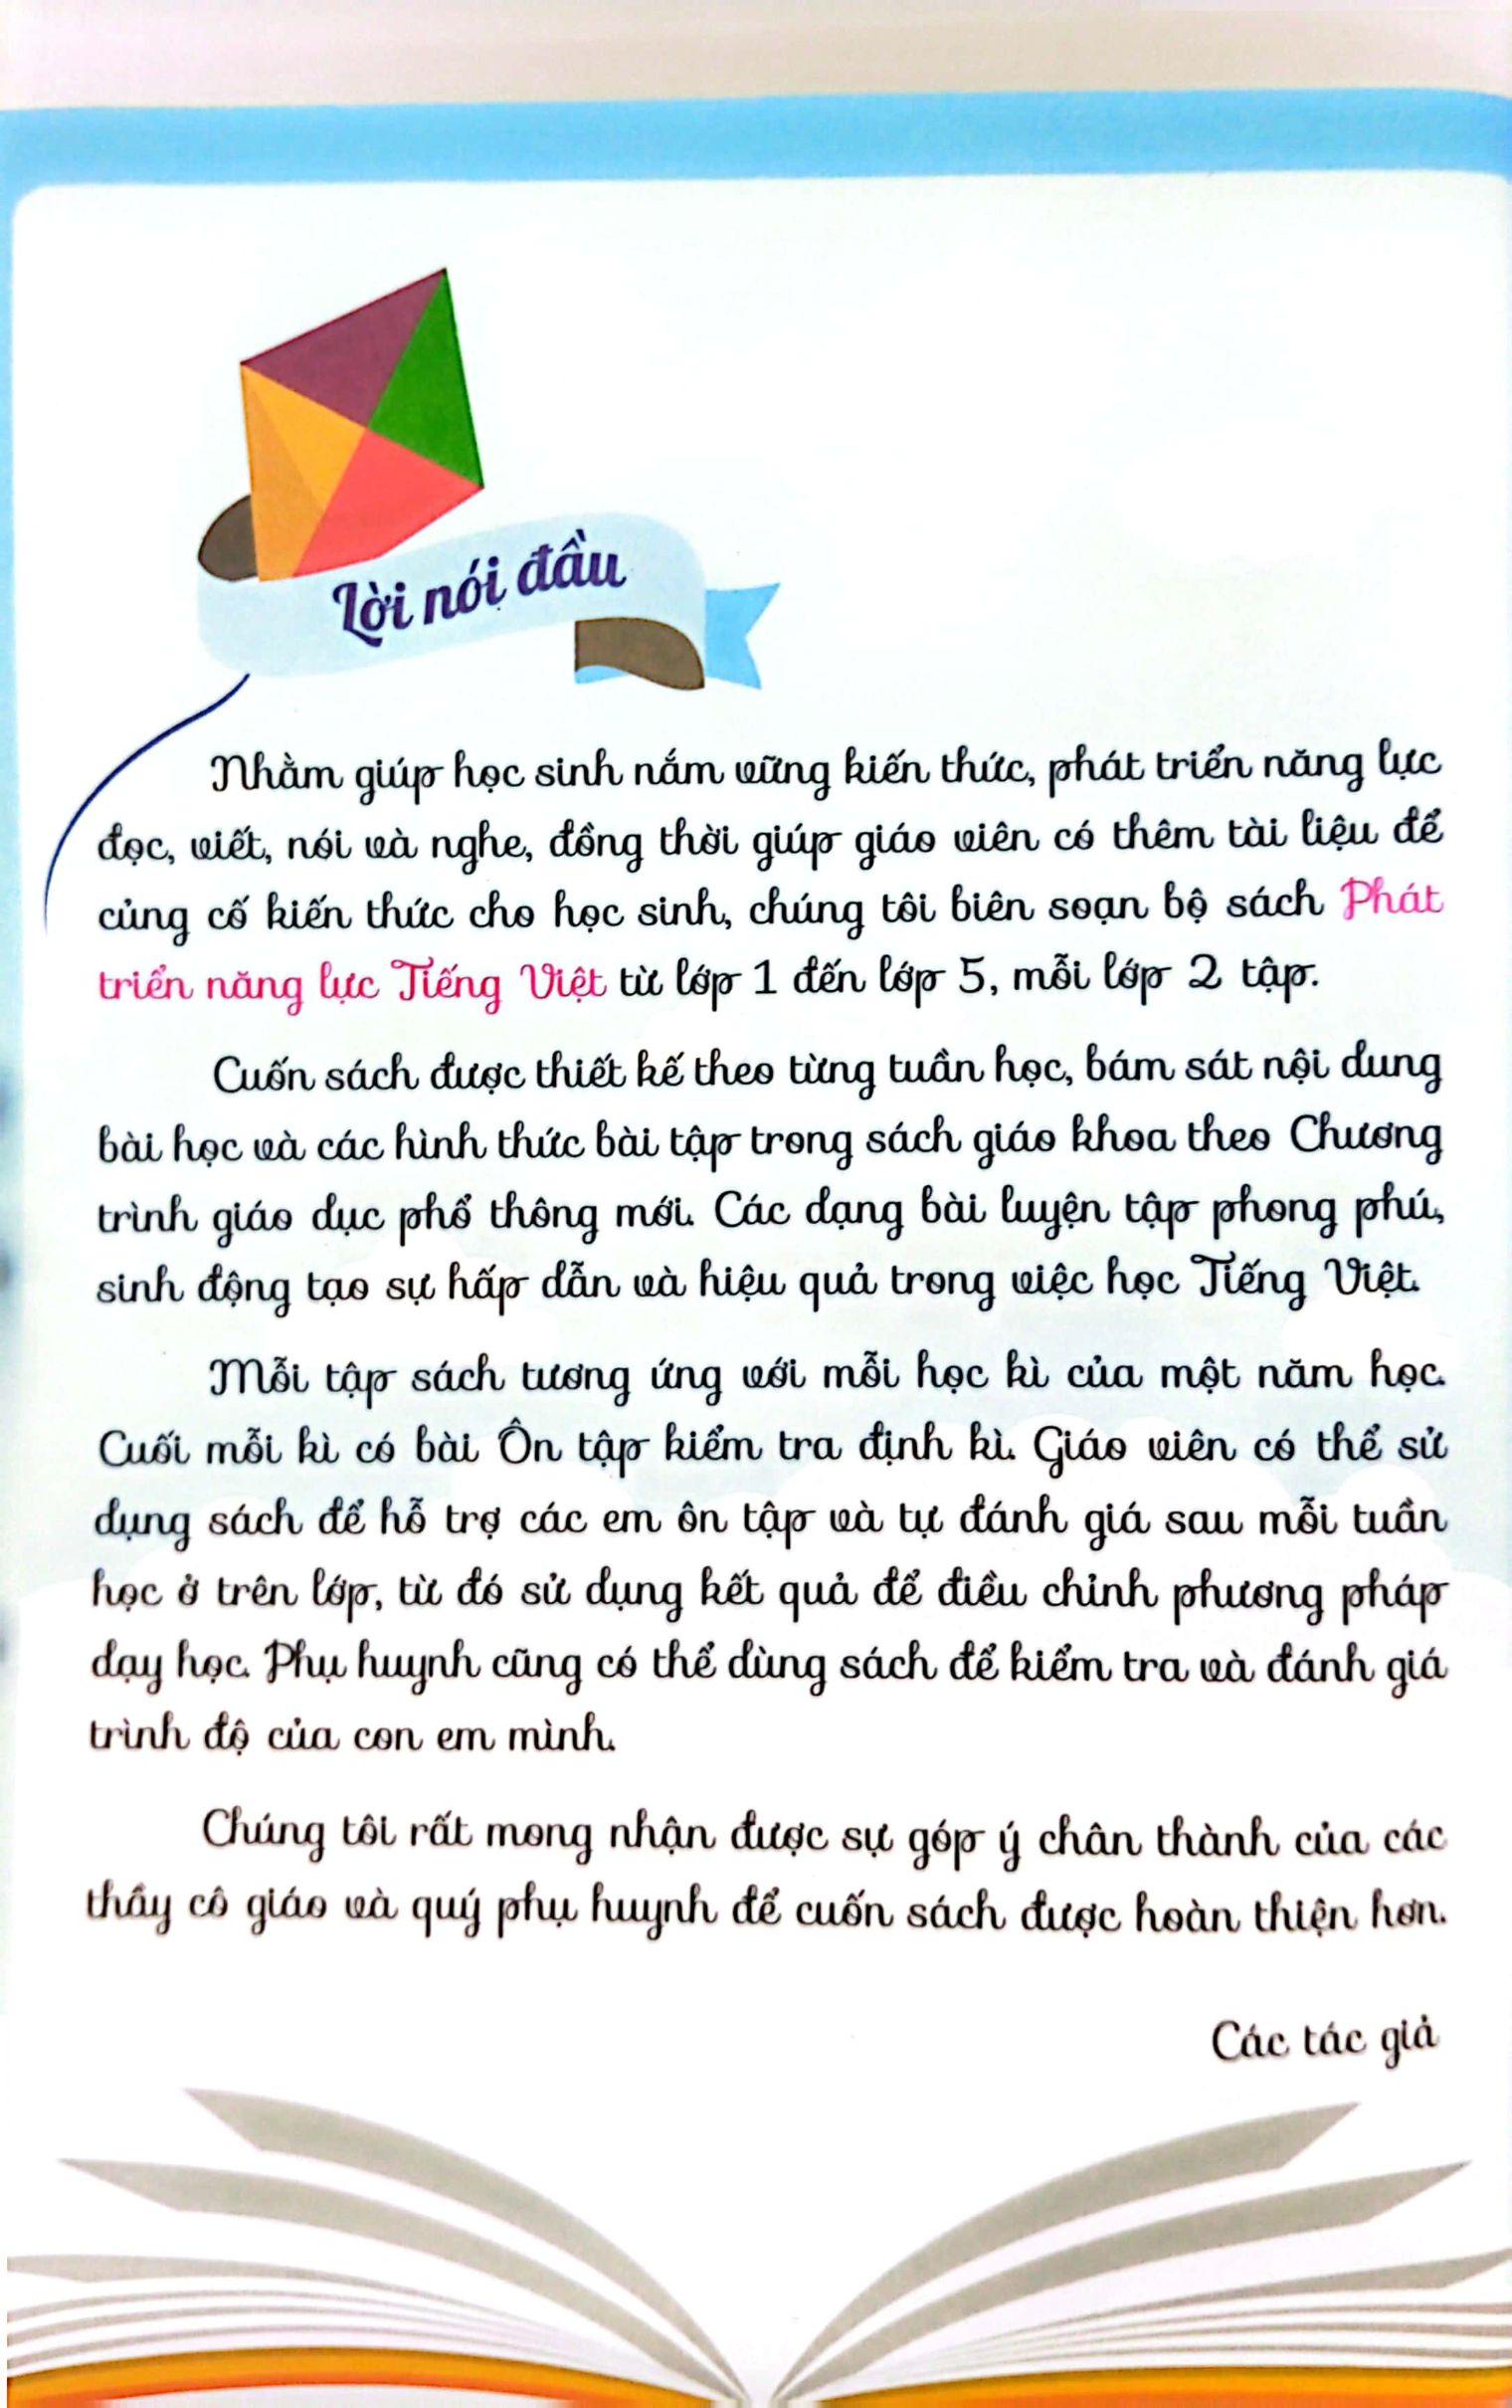 Lời nói đầu
Nhằm giúp học sinh nắm vững kiến thức, phát triển năng lực
đọc, viết, nói và nghe, đồng thời giúp giáo viên có thêm tài liệu để
củng cố kiến thức cho học sinh, chúng tôi biên soạn bộ sách Phát
triển năng lực Tiếng Việt từ lớp 1 đến lớp 5, mỗi lớp 2 tập.
Cuốn sách được thiết kế theo từng tuần học, bám sát nội dung
bài học và các hình thức bài tập trong sách giáo khoa theo Chương
trình giáo dục phổ thông mới. Các dạng bài luyện tập phong phú,
sinh động tạo sự hấp dẫn và hiệu quả trong việc học Tiếng Việt.
Mỗi tập sách tương ứng với mỗi học kì của một năm học.
Cuối mỗi kì có bài Ôn tập kiểm tra định kì. Giáo viên có thể sử
dụng sách để hỗ trợ các em ôn tập và tự đánh giá sau mỗi tuần
học ở trên lớp, từ đó sử dụng kết quả để điều chỉnh phương pháp
dạy học. Phụ huynh cũng có thể dùng sách để kiểm tra và đánh giá
trình độ của con em mình.
Chúng tôi rất mong nhận được sự góp ý chân thành của các
thầy cô giáo và quý phụ huynh để cuốn sách được hoàn thiện hơn.
Các tác giả